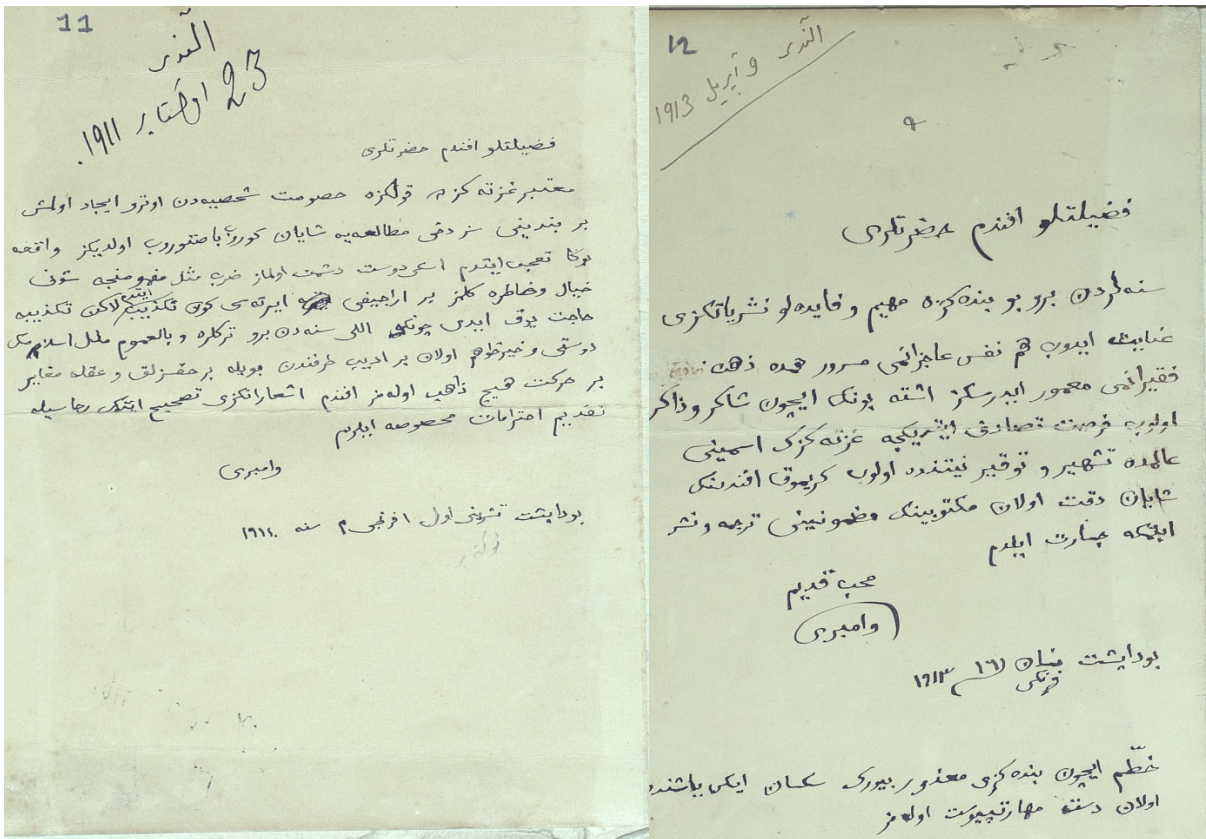 11
الندى
23 اوكتابر 1911.
فضيلتلو افندم حضرتلرى
معتبر غزته كزه قولكزه خصومت شخصيه دن اوترو ايجاد اولمش
بر بندينى سز دخى مطالعه يه شايان كوروب باصديروب اولديكز واقعه
بوكا تعجب ايتدم اسكى دوست دشمن اولماز ضرب مثل مفهومنجه شونى
خيال وخاطره كلمز بر اراجيفى ايرته سى كون تكذيب ايتدم لاكن تكذيبه
حاجت يوق ايدى چونكه اللى سنه دن برو تركلره و بالعموم ملل اسلامنك
دوستى وخيرخواهى اولان بر اديب طرفندن بويله بر حقسزلق و عقله مغاير
بر حركت هيچ ذاهب اوله مز افندم اشعاراتكزى تصحيح ايتمك رجاسيله
تقديم احترامات مخصوصه ايلرم
وامبرى
بوداپشت تشرين اول افرنجى سنه ١٩١١
12
الندى 9 اپريل 1913
فضيلتلو افندم حضرتلرى
سنه لردن برو بو بنده كزه مهم و فايده لو نشرياتكزى
عنايت ايدوب هم نفس عاجزانمى مسرور همده ذهن
فقيرانمى معمور ايدرسكز اشته بونك ايچون شاكر و ذاكر
اولوب فرصت تصادف ايتديكجه غزته كزك اسمينى
عالمده تشهير و توقير نيتنده اولوب كريموف افندينك
شايان دقت اولان مكتوبينك مضمونينى ترجمه و نشر
ايتمكه جسارت ايلدم
محب قديم
وامبرى
بوداپشت نيسان ١٦ ١٩١٣
فرنكى
خطّم ايچون بنده كزى معذور بيورك سكسان ايكى ياشنده
اولان دست مهارتپيوست اوله مز